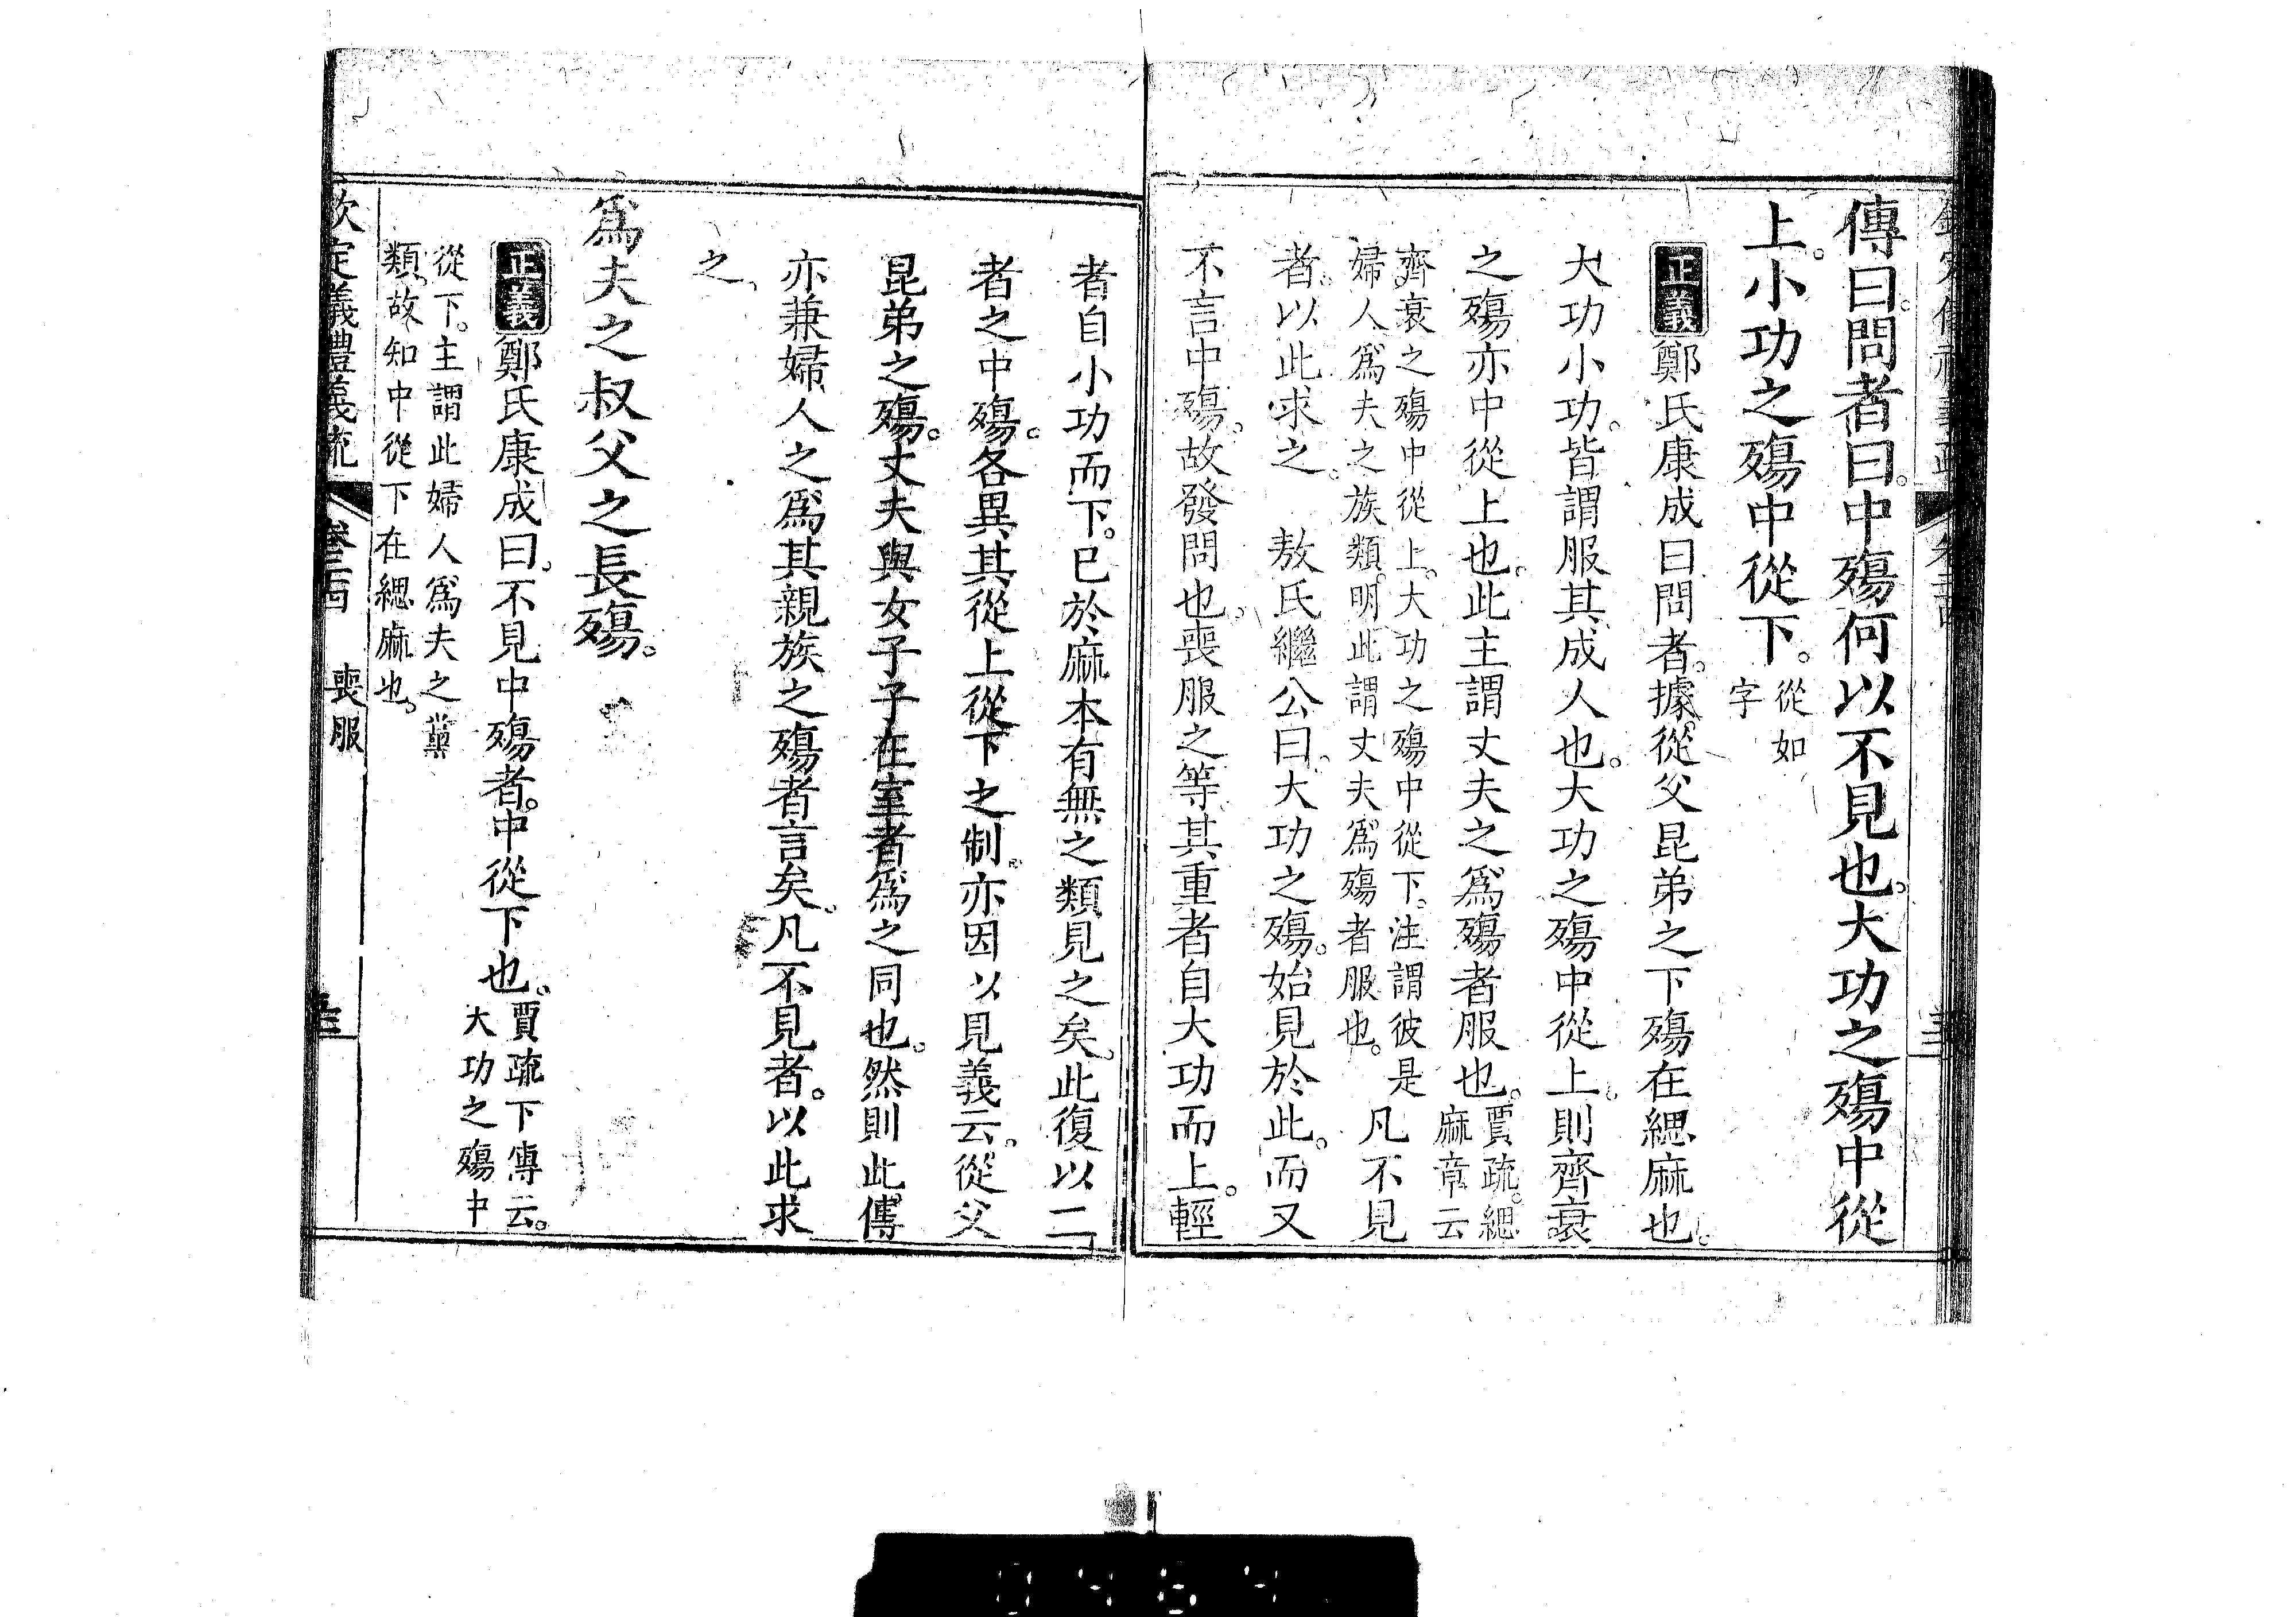 傳曰。問者曰。中殤何以不見也。大功之殤中從
上。小功之殤中從下。從如字
正義鄭氏康成曰問者。據從父昆弟之下殤在緦麻也。
大功小功。皆謂服其成人也。大功之殤中從上。則齊衰
之殤亦中從上也。此主謂丈夫之爲殤者服也。賈疏。緦麻章云
齊衰之殤中從上。大功之殤中從下。注謂彼是婦人爲夫之族類。明此謂丈夫爲殤者服也。凡不見
者。以此求之。敖氏繼公曰。大功之殤。始見於此。而又
不言中殤。故發問也。喪服之等。其重者自大功而上。輕
者自小功而下。已於麻本有無之類見之矣。此復以二
者之中殤。各異其從上從下之制。亦因以見義云。從父
昆弟之殤。丈夫與女子子在室者爲之同也。然則此傳
亦兼婦人之爲其親族之殤者言矣。凡不見者。以此求
之。
爲夫之叔父之長殤。
正義鄭氏康成曰。不見中殤者。中從下也。賈疏下傳云。大功之殤中
從下。主謂此婦人爲夫之黨類。故知中從下在緦麻也。
欽定義禮義疏 卷二四 喪服